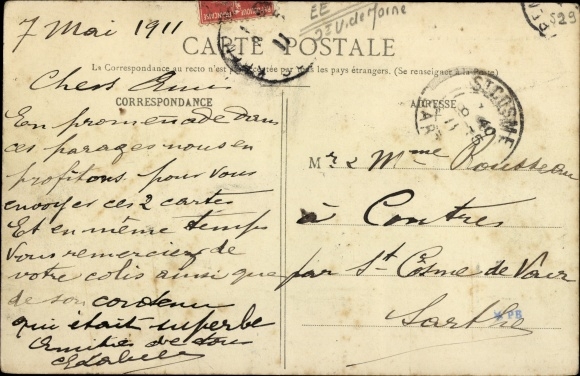 7 Mai 1911
EE
CARTE POSTALE
La Correspondance au recto n'est pas acceptée par tous les pays étrangers. (Se renseigner à la Poste)
Chers Amis
CORRESPONDANCE
En promenade dans
ces parages nous en
profitons pour vous
envoyer ces 2 cartes
Et en même temps
vous remercier de
votre colis ainsi que
de son contenu
qui était superbe
Amitiés de tous
ADRESSE
ST COSME
SARTHE
Mr & Mme Rousseau
à Contres
par St Cosme de Vair
Sarthe
* PB
529